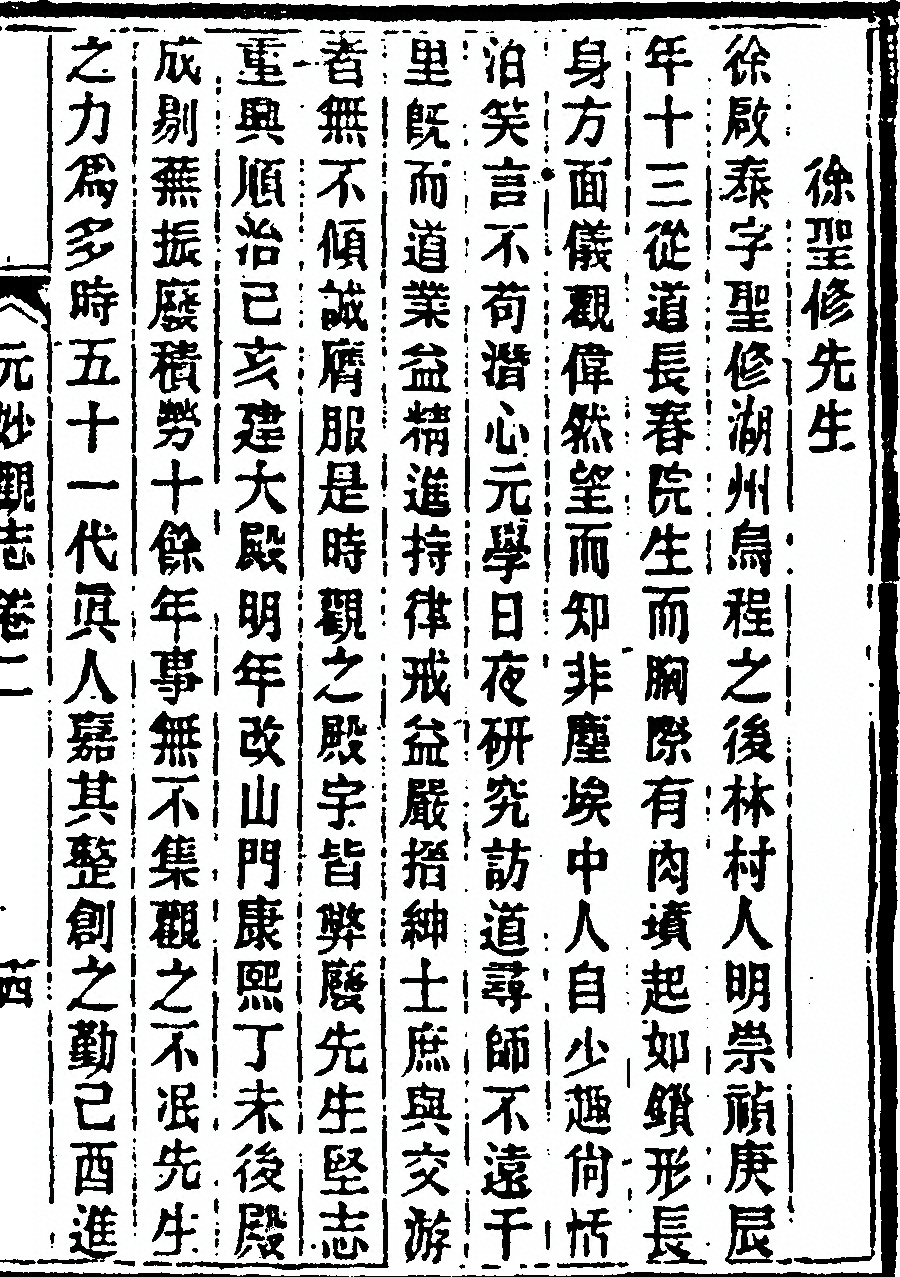 徐聖修先生
徐啟泰字聖修湖州烏程之後林村人明崇禎庚辰
年十三從道長春院生而胸際有肉墳起如鎖形長
身方面儀觀偉然望而知非塵埃中人自少趣尙恬
泊笑言不苟潛心元學日夜研究訪道尋師不遠千
里旣而道業益精進持律戒益嚴搢紳士庶與交游
者無不傾誠膺服是時觀之殿宇皆弊廢先生堅志
重興順治己亥建大殿明年改山門康熙丁未後殿
成剔蕪振廢積勞十餘年事無不集觀之不泯先生
之力爲多時五十一代眞人嘉其整創之勤己酉進
元妙觀志卷二
四